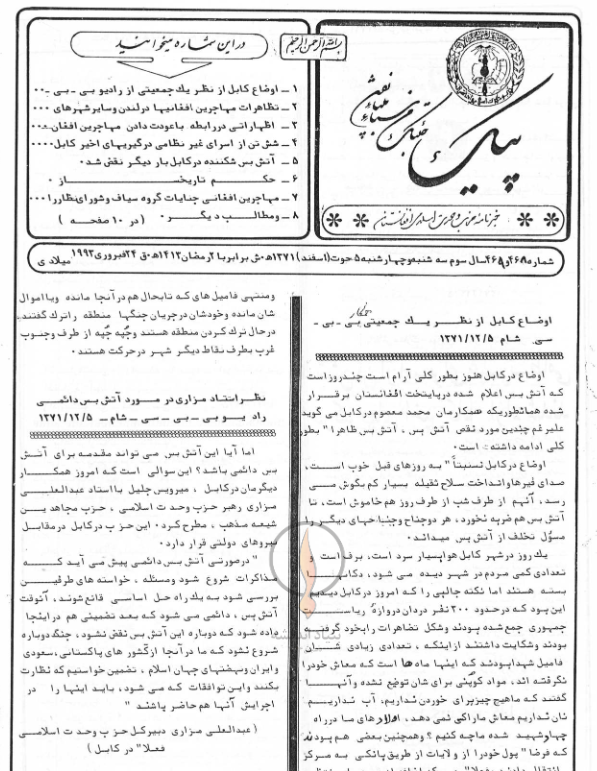 بسم الله الرحمن الرحیم
در این شماره میخوانید
۱ ـ اوضاع کابل از نظر یك جمعیتی از رادیو بی ـ بی ـ۰۰
۲ ـ تظاهرات مهاجرین افغانیها درلندن وسایرشهرهای ۰۰۰
۳ ـ اظهاراتی دررابطه باعودت دادن مهاجرین افغان ۰۰
۴ ـ شش تن از اسرای غیر نظامی درگیریهای اخیر کابل ۰۰۰
۵ ـ آتش بس شکننده درکابل بار دیگر نقض شد۰
۶ ـ حکم تاریخساز ۰
۷ ـ مهاجرین افغانی جنایات گروه سیاف وشورای نظاررا ۰۰۰
۸ ـ ومطالب دیگر۰ (در ۱۰ صفحه)
پیک
خبرنامه حزب وحدت اسلامی افغانستان
شماره ۴۶۸و۴۶۹ سال سوم سه شنبه وچهارشنبه ۵ حوت (اسفند) ۱۳۷۱ هـ ش برابربا ۲ رمضان ۱۴۱۳ هـ ق ۲۴ فبروری ۱۹۹۳ میلادی
اوضاع کابل از نظر یك جمعیتی همکار بی ـ بی ـ
سی شام ۱۳۷۱/۱۲/۵
اوضاع درکابل هنوز بطور کلی آرام است چندروزاست
که آتش بس اعلام شده درپایتخت افغانستان برقرار
شده همانطوریکه همکارمان محمد معصوم درکابل می گوید
علیرغم چندین مورد نقص آتش بس ، آتش بس ظاهرا" بطور
کلی ادامه داشته است۰
اوضاع درکابل نسبتا" به روزهای قبل خوب است،
صدای فیرها وانداخت سلاح ثقیله بسیار کم بگوش می
رسد، آنهم از طرف شب از طرف روز هم خاموش است، تا
آتش بس هم ضربه نخورد، هر دوجناح وجناحهای دیگر را
مسؤل تخلف از آتش بس میداند۰
یك روز در شهر کابل هوا بسیار سرد است، برف است و
تعدادی کمی مردم در شهر دیده می شود، دکانها
بسته هستند اما نکته جالبی را که امروز درکابل دیدیم
این بود که درحدود ۲۰۰ نفر دربان دروازه ریاست
جمهوری جمع شده بودند وشکل تضاهرات رابخود گرفته
بودند وشکایت داشتند ازاینکه ، تعدادی زیادی شان
فامیل شهدا بودند که اینها ماه ها است که معاش خودرا
نگرفته اند، مواد کوپنی برای شان توضع نشده وآنها
گفتند که ماهیچ چیزبرای خوردن نداریم، آب نداریم
نان نداریم معاش ماراکی نمی دهد، اولاد های ما درراه
جهاد شهید شده ماچه کنیم ؟ وهمچنین بعضی هم بودند
که قرضا" پول خودرا از ولایات از طریق بانکی به مرکز
ومنتهی فامیل های که تابحال هم درآنجا مانده ویااموال
شان مانده وخودشان درجریان جنگها منطقه راترك گفتند،
درحال ترك کردن منطقه هستند وچُپه چُپه از طرف وجنوب
غرب بطرف نقاط دیگر شهر درحرکت هستند۰
نظر استاد مزاری در مورد آتش بس دائمی
رادیو بی ـ بی ـ سی ـ شام ـ ۱۳۷۱/۱۲/۵
اما آیا این آتش بس می تواند مقدمه برای آتش
بس دائمی باشد؟ این سوالی است که امروز همکار
دیگرمان درکابل ، میرویس جلیل بااستاد عبدالعلی
مزاری رهبر حزب وحدت اسلامی ، حزب مجاهدین
شیعه مذهب ، مطرح کرد۰ این حزب درکابل درمقابل
نیروهای دولتی قرار دارد۰
" درصورتی آتش بس دائمی پیش می آید که
مذاکرات شروع شود ومسئله ، خواسته های طرفین
بررسی شود به یك راه حل اساسی قانع شوند، آنوقت
آتش بس ، دائمی می شود که بعد تضمینی هم دراینجا
داده شود که دوباره این آتش بس نقض نشود، جنگ دوباره
شروع نشود که ما درآنجا ازکشور های پاکستانی ، سعودی
وایران ونهضتهای جهان اسلام ، تضمین خواستیم که نظارت
بکنند واین توافقات که می شود، باید اینها را در
اجرایش آنها هم حاضر باشند "
( عبدالعلی مزاری دبیرکل حزب وحدت اسلامی
فعلا" در کابل )